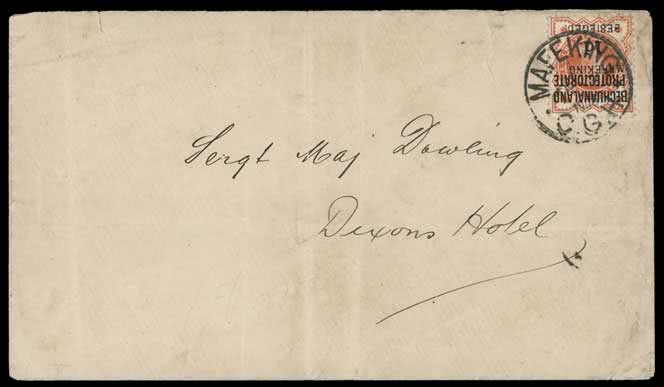 BESIEGED
MAFEKING
BECHUANALAND
PROTECTORATE
MAFEKING
C.G.H.
Sergt Maj Dowling
Dixons Hotel